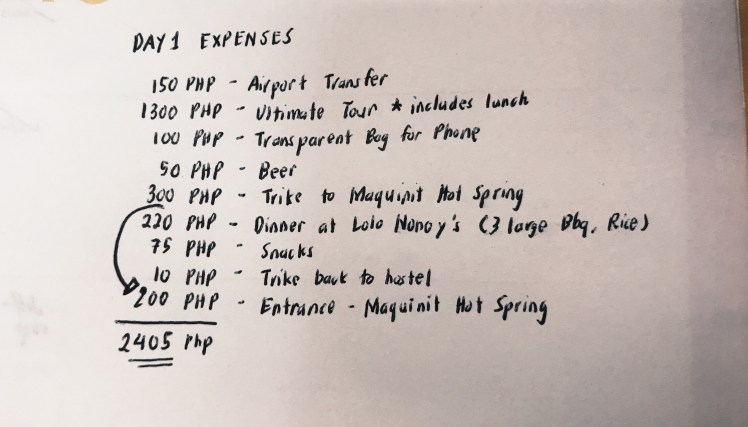 DAY 1 EXPENSES
150 PHP - Airport Transfer
1300 PHP - Ultimate Tour * includes lunch
100 PHP - Transparent Bag for Phone
50 PHP - Beer
300 PHP - Trike to Maquinit Hot Spring
220 PHP - Dinner at Lolo Nonoy's (3 large Bbq, Rice)
75 PHP - Snacks
10 PHP - Trike back to hostel
200 PHP - Entrance - Maquinit Hot Spring
2405 Php